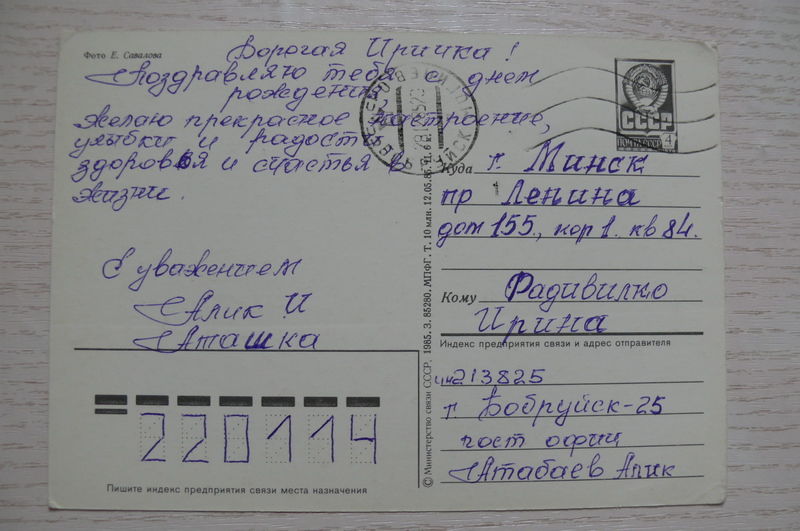 Фото Е. Савалова
Дорогая Иринка!
Поздравляю тебя с днем
рождения
желаю прекрасное настроение,
улыбки и радость
здоровья и счастья в
жизни.
С уважением
Алик И
Аташка
220114
Пишите индекс предприятия связи места назначения
© Министерство связи СССР. 1985. З. 85280. МПФГ. Т. 10 млн. 12.05.85. Ц. 6 к.
СССР
ПОЧТА СССР 4
Куда г. Минск
пр Ленина
дом 155., кор 1. кв 84.
Кому Радивилко
Ирина
Индекс предприятия связи и адрес отправителя
инд 213825
г Бобруйск-25
пост офици
Атабаев Алик